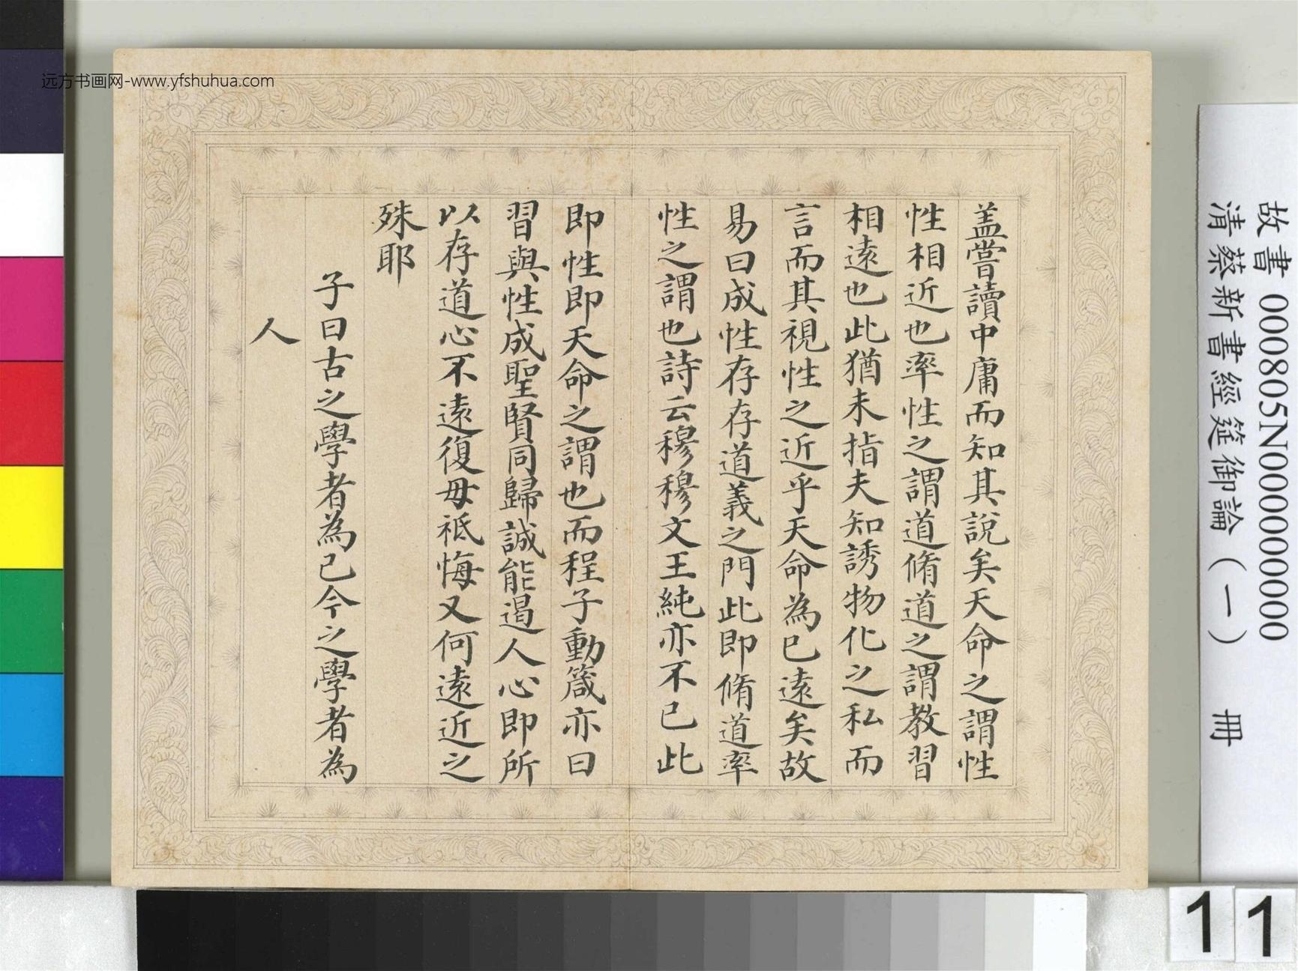 远方书画网-www.yfshuhua.com
盖嘗讀中庸而知其說矣天命之謂性
性相近也率性之謂道脩道之謂教習
相遠也此猶未指夫知誘物化之私而
言而其視性之近乎天命為已遠矣故
易曰成性存存道義之門此即脩道率
性之謂也詩云穆穆文王純亦不已此
即性即天命之謂也而程子動箴亦曰
習與性成聖賢同歸誠能遏人心即所
以存道心不遠復毋祗悔又何遠近之
殊耶
子曰古之學者為己今之學者為
人
故書 000805N000000000
清蔡新書經筵御論(一) 冊
11